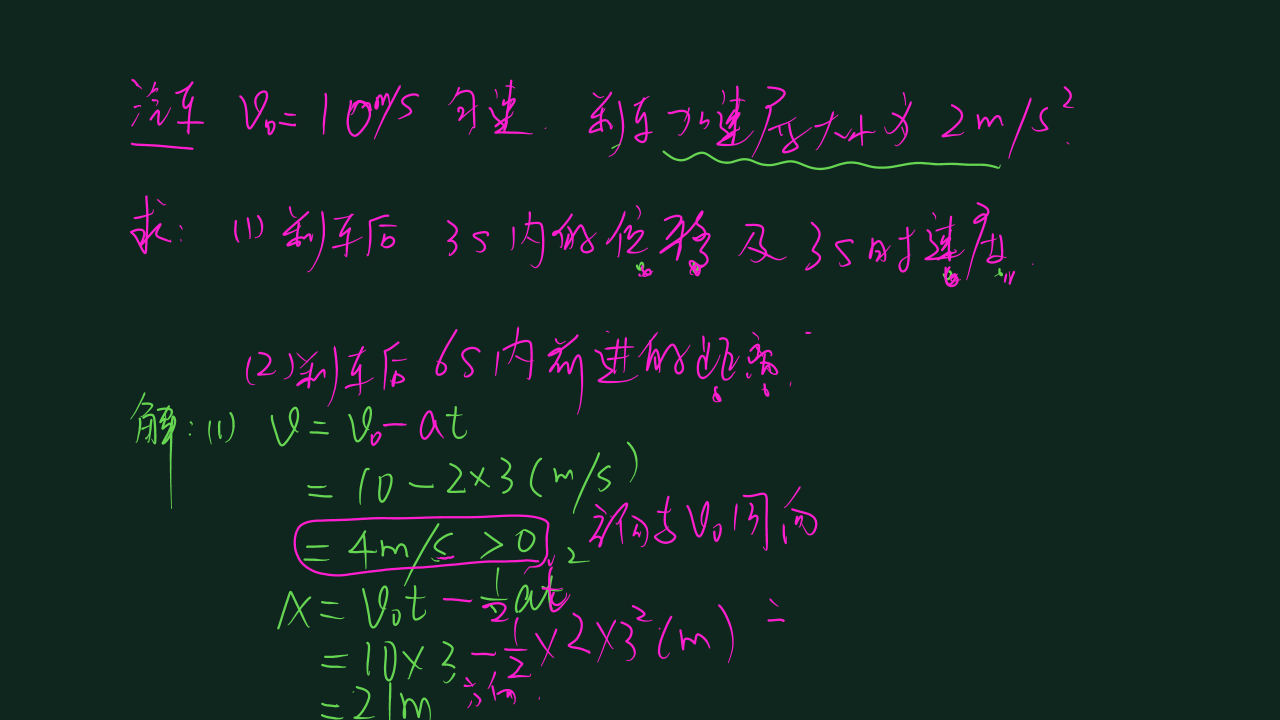 汽车 V₀=10m/s 匀速. 刹车加速度大小为 2m/s².
求: (1) 刹车后 3s内的位移及3s时速度.
(2) 刹车后 6s内前进的距离.
解: (1) V = V₀ - at
= 10 - 2×3 (m/s)
= 4m/s > 0 方向与V₀同向
x = V₀t - ½at²
= 10×3 - ½×2×3² (m) =
= 21m 方向